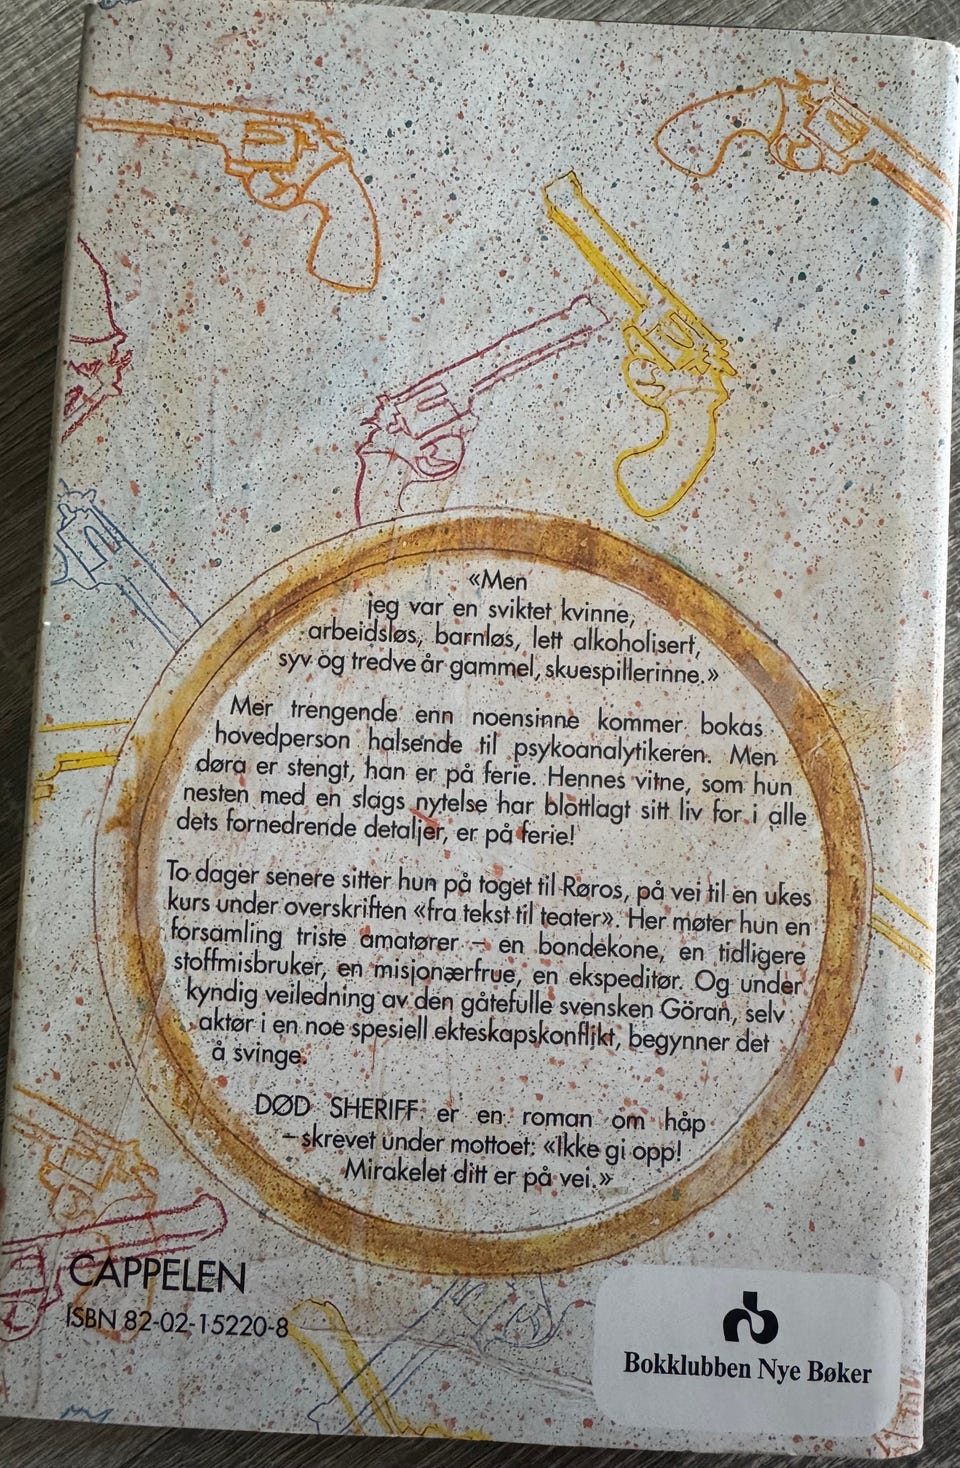 «Men
jeg var en sviktet kvinne,
arbeidsløs, barnløs, lett alkoholisert,
syv og tredve år gammel, skuespillerinne.»
Mer trengende enn noensinne kommer bokas
hovedperson halsende til psykoanalytikeren. Men
døra er stengt, han er på ferie. Hennes vitne, som hun
nesten med en slags nytelse har blottlagt sitt liv for i alle
dets fornedrende detaljer, er på ferie!
To dager senere sitter hun på toget til Røros, på vei til en ukes
kurs under overskriften «fra tekst til teater». Her møter hun en
forsamling triste amatører – en bondekone, en tidligere
stoffmisbruker, en misjonærfrue, en ekspeditør. Og under
kyndig veiledning av den gåtefulle svensken Göran, selv
aktør i en noe spesiell ekteskapskonflikt, begynner det
å svinge.
DØD SHERIFF er en roman om håp
– skrevet under mottoet: «Ikke gi opp!
Mirakelet ditt er på vei.»
CAPPELEN
ISBN 82-02-15220-8
Bokklubben Nye Bøker